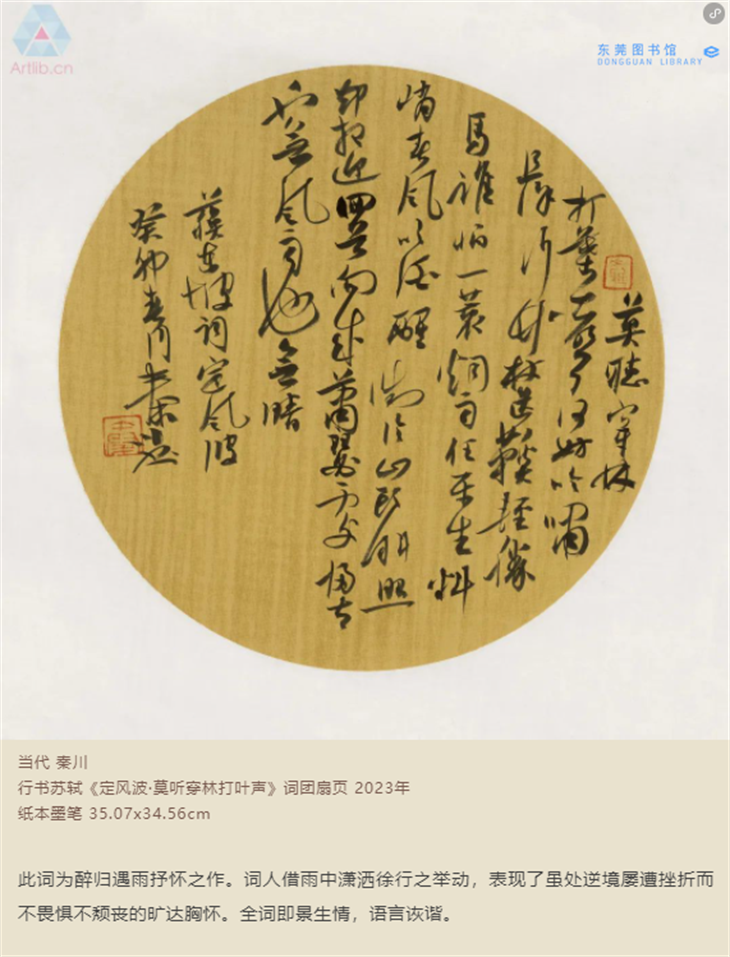 Artlib.cn
东莞图书馆
DONGGUAN LIBRARY
莫聽穿林
打葉聲何妨吟嘯
且徐行竹杖芒鞵輕勝
馬誰怕一蓑烟雨任平生料
峭春風吹酒醒微冷山頭斜照
却相迎回首向來蕭瑟處歸去
也無風雨也無晴
蘇東坡詞定風波
癸卯春月秦川
当代 秦川
行书苏轼《定风波·莫听穿林打叶声》词团扇页 2023年
纸本墨笔 35.07x34.56cm
此词为醉归遇雨抒怀之作。词人借雨中潇洒徐行之举动，表现了虽处逆境屡遭挫折而
不畏惧不颓丧的旷达胸怀。全词即景生情，语言诙谐。